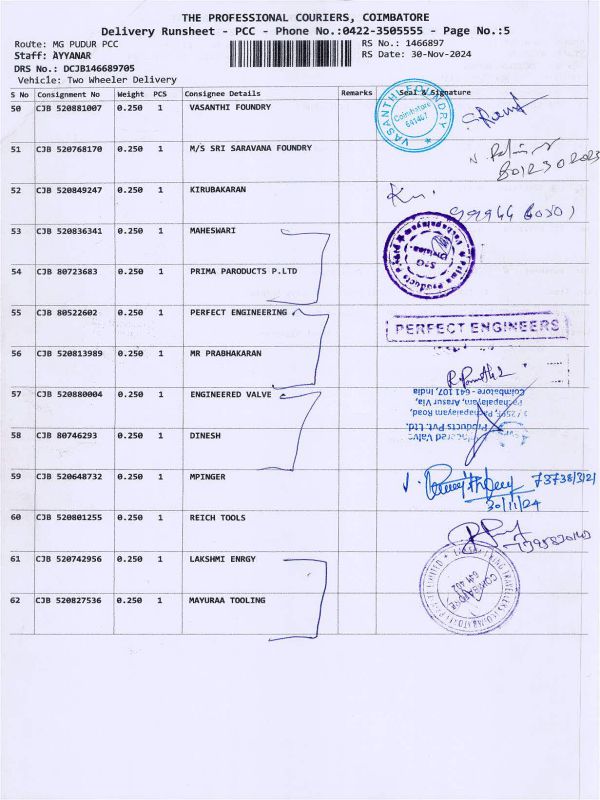 THE PROFESSIONAL COURIERS, COIMBATORE
Delivery Runsheet - PCC - Phone No.:0422-3505555 - Page No.:5
Route: MG PUDUR PCC
RS No.: 1466897
Staff: AYYANAR
RS Date: 30-Nov-2024
DRS No.: DCJB146689705
Vehicle: Two Wheeler Delivery
S No Consignment No Weight PCS Consignee Details Remarks Seal & Signature
50 CJB 520881007 0.250 1 VASANTHI FOUNDRY
VASANTHI FOUNDRY
Coimbatore
641407
51 CJB 520768170 0.250 1 M/S SRI SARAVANA FOUNDRY
52 CJB 520849247 0.250 1 KIRUBAKARAN
53 CJB 520836341 0.250 1 MAHESWARI
54 CJB 80723683 0.250 1 PRIMA PARODUCTS P.LTD
55 CJB 80522602 0.250 1 PERFECT ENGINEERING
PERFECT ENGINEERS
56 CJB 520813989 0.250 1 MR PRABHAKARAN
57 CJB 520880004 0.250 1 ENGINEERED VALVE
Coimbatore - 641 107, India
58 CJB 80746293 0.250 1 DINESH
Products Pvt. Ltd.
59 CJB 520648732 0.250 1 MPINGER
30/11/24
60 CJB 520801255 0.250 1 REICH TOOLS
61 CJB 520742956 0.250 1 LAKSHMI ENRGY
62 CJB 520827536 0.250 1 MAYURAA TOOLING